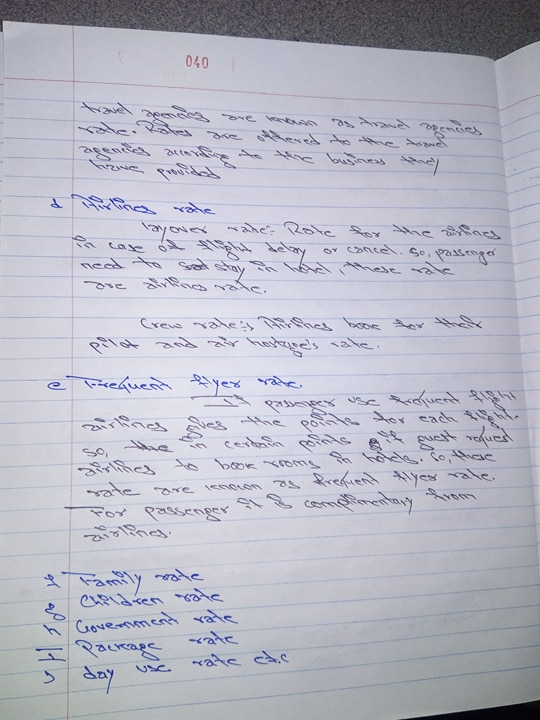 040
travel agencies are known as travel agencies
rate. Rates are offered to the travel
agencies according to the business they
have provided
d Airlines rate
layover rate:- Rate for the airlines
in case of flight delay or cancel. So, passenger
need to stay in hotel, these rate
are airlines rate.
Crew rate:- Airlines book for their
pilot and air hostage's rate.
e Frequent flyer rate.
If passenger use frequent flight
airlines gives the points for each flight.
So, the in certain points if guest request
airlines to book rooms in hotels. So, these
rate are known as frequent flyer rate.
For passenger it is complimentary from
airlines.
f Family rate
g Children rate
h Government rate
I Package rate
J day use rate etc